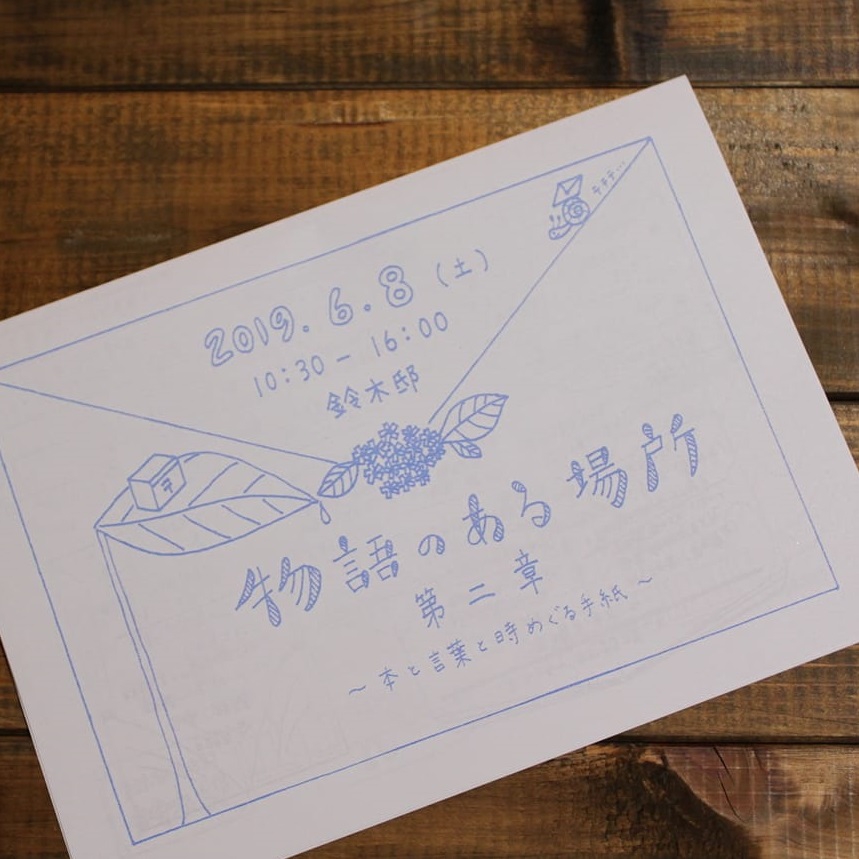 2019.6.8(土)
10:30 - 16:00
鈴木邸
物語のある場所
第二章
～本と言葉と時めぐる手紙～
〒